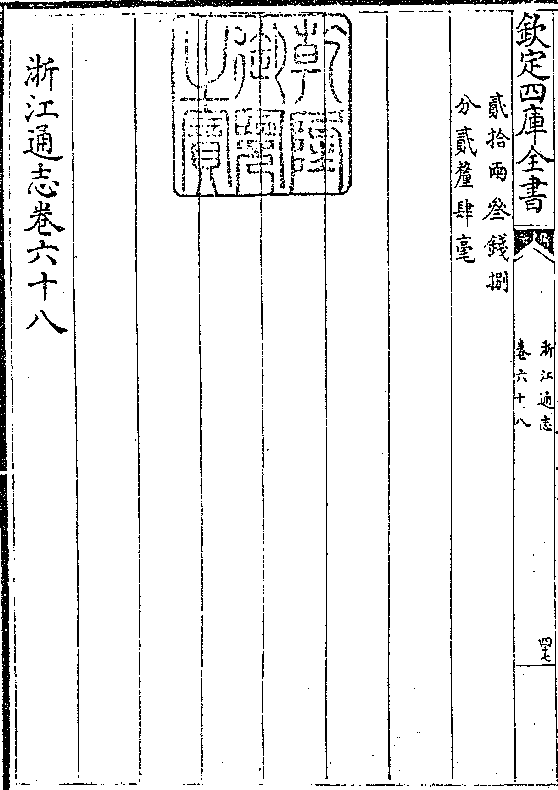 欽定四庫全書
浙江通志
卷六十八
四十七
貳拾兩叄錢捌
分貳釐肆毫
乾隆
御覽
之寶
浙江通志卷六十八